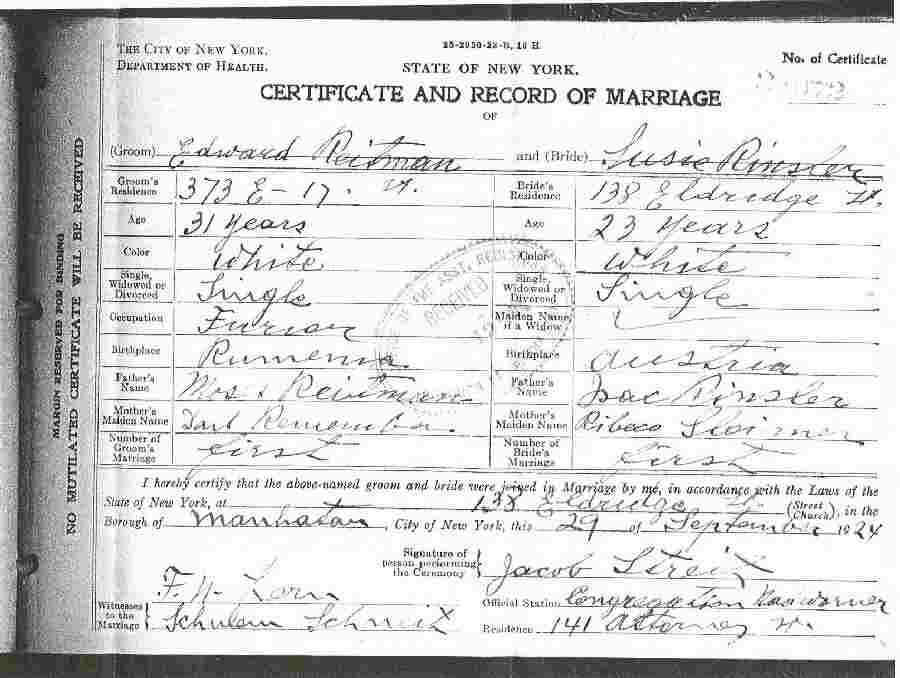 25-2950-23-B, 16 H
THE CITY OF NEW YORK.
DEPARTMENT OF HEALTH.
STATE OF NEW YORK.
No. of Certificate
CERTIFICATE AND RECORD OF MARRIAGE
OF
(Groom) Edward Reitman and (Bride) Susie Rinsler
Groom's Residence 373 E - 17. St. Bride's Residence 138 Eldridge St.
Age 31 Years Age 23 Years
Color White Color White
Single, Widowed or Divorced Single Single, Widowed or Divorced Single
Occupation Furior Maiden Name, if a Widow
Birthplace Rumenia Birthplace Austria
Father's Name Mos Reitman Father's Name Isac Rinsler
Mother's Maiden Name Dont Remember Mother's Maiden Name Ribeco
Number of Groom's Marriage first Number of Bride's Marriage first
I hereby certify that the above-named groom and bride were joined in Marriage by me, in accordance with the Laws of the
State of New York, at 138 Eldridge St. (Street Church), in the
Borough of Manhatan, City of New York, this 29 of September 1924
Signature of person performing the Ceremony Jacob Streit
Witnesses to the Marriage F. Korn
Schulem Schneit
Official Station Congregation
Residence 141 Attorney St.
MARGIN RESERVED FOR BINDING
NO MUTILATED CERTIFICATE WILL BE RECEIVED
RECEIVED